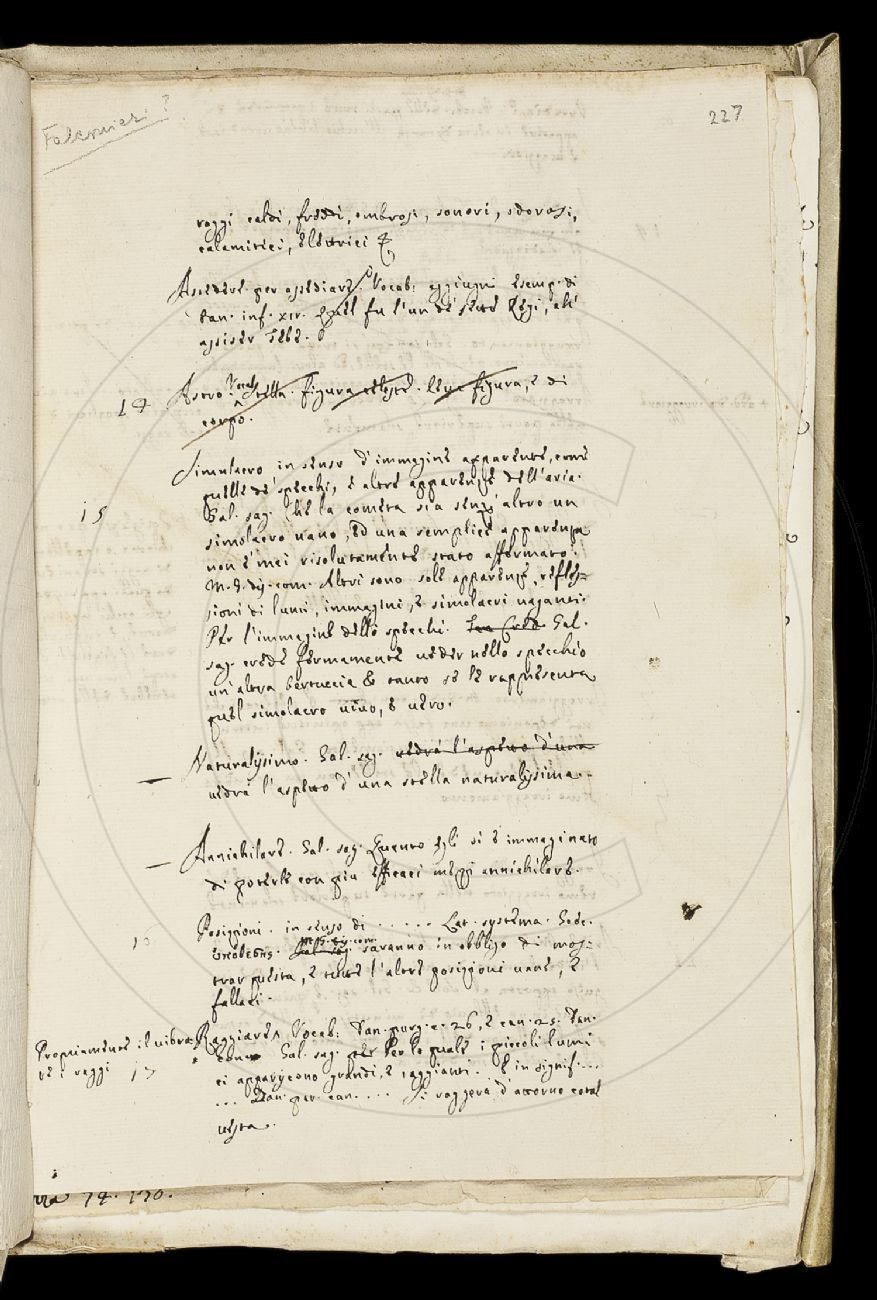 Falconieri?
227
raggi caldi, freddi, ombrosi, sonori, odorosi,
calamitici, elettrici &
Assedere per assediare. Vocab: aggiugni esemp. di
Dan. inf. xiv. Quel fu l'un de' sette Regi, ch'
assiser Tebe.
14
Astro. Vocab. stella. figura celeste. Leva figura, e di
corpo.
15
Simulacro in senso d'immagine apparente, come
quelle de' specchi, e altre apparenze dell'aria.
Gal. sag. Che la cometa sia senz' altro un
simolacro vano, ed una semplice apparenza
non è mai risolutamente stato affermato.
M. G. dis. com. Altri sono sole apparenze, refles-
sioni di lumi, immagini, e simolacri vaganti.
Per l'immagine dello specchi. Gal.
sag. crede fermamente veder nello specchio
un'altra bertuccia & tanto se le rappresenta
quel simolacro vivo, e vero.
— Naturalissimo. Gal. sag. vedrà l'aspetto d'una
vedrà l'aspetto d'una stella naturalissima.
— Annichilare. Gal. sag. Quanto egli si è immaginato
di poterle con più efficaci mezzi annichilare.
16
Posizioni. in senso di ...... Lat. systema. Gode.
M. G. dis. com.
Gal. sag. saranno in obbligo di mos-
trar questa, e tutte l'altre posizioni vane, e
fallaci.
Propriamente: il vibra-
re i raggi
17
Raggiare Vocab: Dan. purg. c. 26, e can. 25. Dan.
Gal. sag. per Per le quali i piccoli lumi
ci appariscono grandi, e raggianti. E in signif....
... Dan. par. can.... Si raggerà d'attorno cotal
vesta.
74. 170.